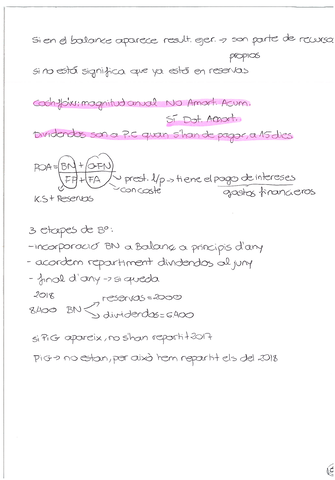 si en el balance aparece result. ejer. → son parte de recursos
propios
si no está significa que ya está en reservas
Cashflow: magnitud anual No Amort. Acum.
Sí Dot. Amort.
Dividendos son a P.C quan s'han de pagar, a 15 dies
ROA = BN + GFN
FP + FA → prest. l/p → tiene el pago de intereses
con coste gastos financieros
K.S + Reservas
3 etapes de BP:
- incorporació BN a Balanç a principis d'any
- acordem repartiment dividendos al juny
- final d'any → si queda
2018 reservas = 2000
8400 BN dividendos = 6400
si PiG apareix, no s'han repartit 2017
PiG → no estan, per això hem repartit els del 2018